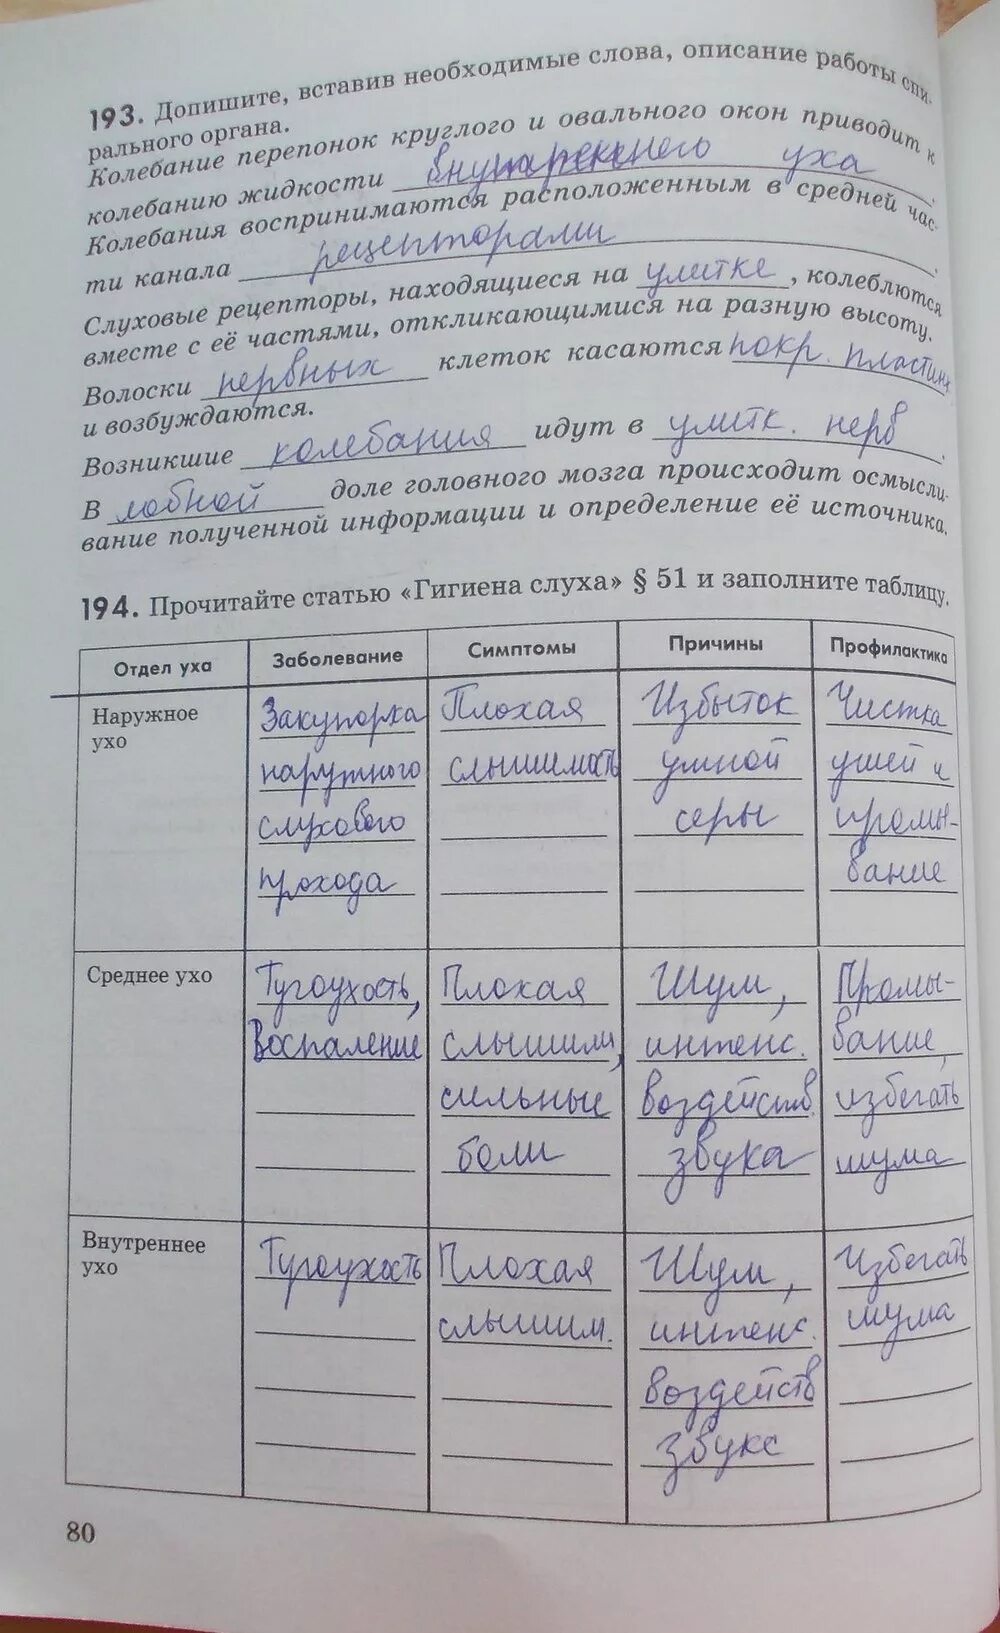 193. Допишите, вставив необходимые слова, описание работы спи-
рального органа.
Колебание перепонок круглого и овального окон приводит к
колебанию жидкости внутреннего уха.
Колебания воспринимаются расположенным в средней час-
ти канала рецепторами.
Слуховые рецепторы, находящиеся на улитке, колеблются
вместе с её частями, откликающимися на разную высоту.
Волоски нервных клеток касаются покр. пластин
и возбуждаются.
Возникшие колебания идут в улитк. нерв.
В лобной доле головного мозга происходит осмысли-
вание полученной информации и определение её источника.
194. Прочитайте статью «Гигиена слуха» § 51 и заполните таблицу.
Отдел уха Заболевание Симптомы Причины Профилактика
Наружное
ухо
Закупорка
наружного
слухового
прохода
Плохая
слышимость
Избыток
ушной
серы
Чистка
ушей и
промы-
вание
Среднее ухо
Тугоухость,
Воспаление
Плохая
слышим,
сильные
боли
Шум,
интенс.
воздейств.
звука
Промы-
вание,
избегать
шума
Внутреннее
ухо
Тугоухость
Плохая
слышим.
Шум,
интенс.
воздейств
звукс
Избегать
шума
80